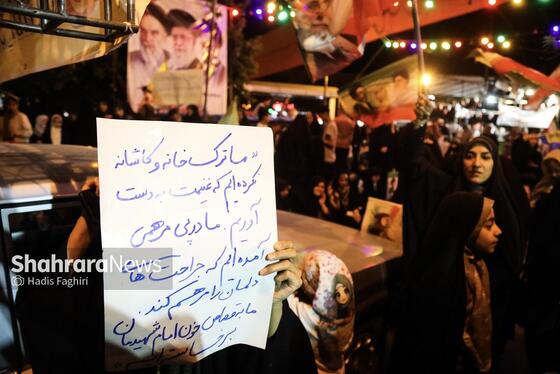 « ما ترک خانه و کاشانه
نکرده‌ایم که غنیمت به دست
آوریم. ما در پی مرهمی
آمده‌ایم که جراحت‌های
دلمان را مرهم کند.
ما به قصاص خون امام شهیدمان
برخاسته‌ایم
ShahraraNews
Hadis Faghiri